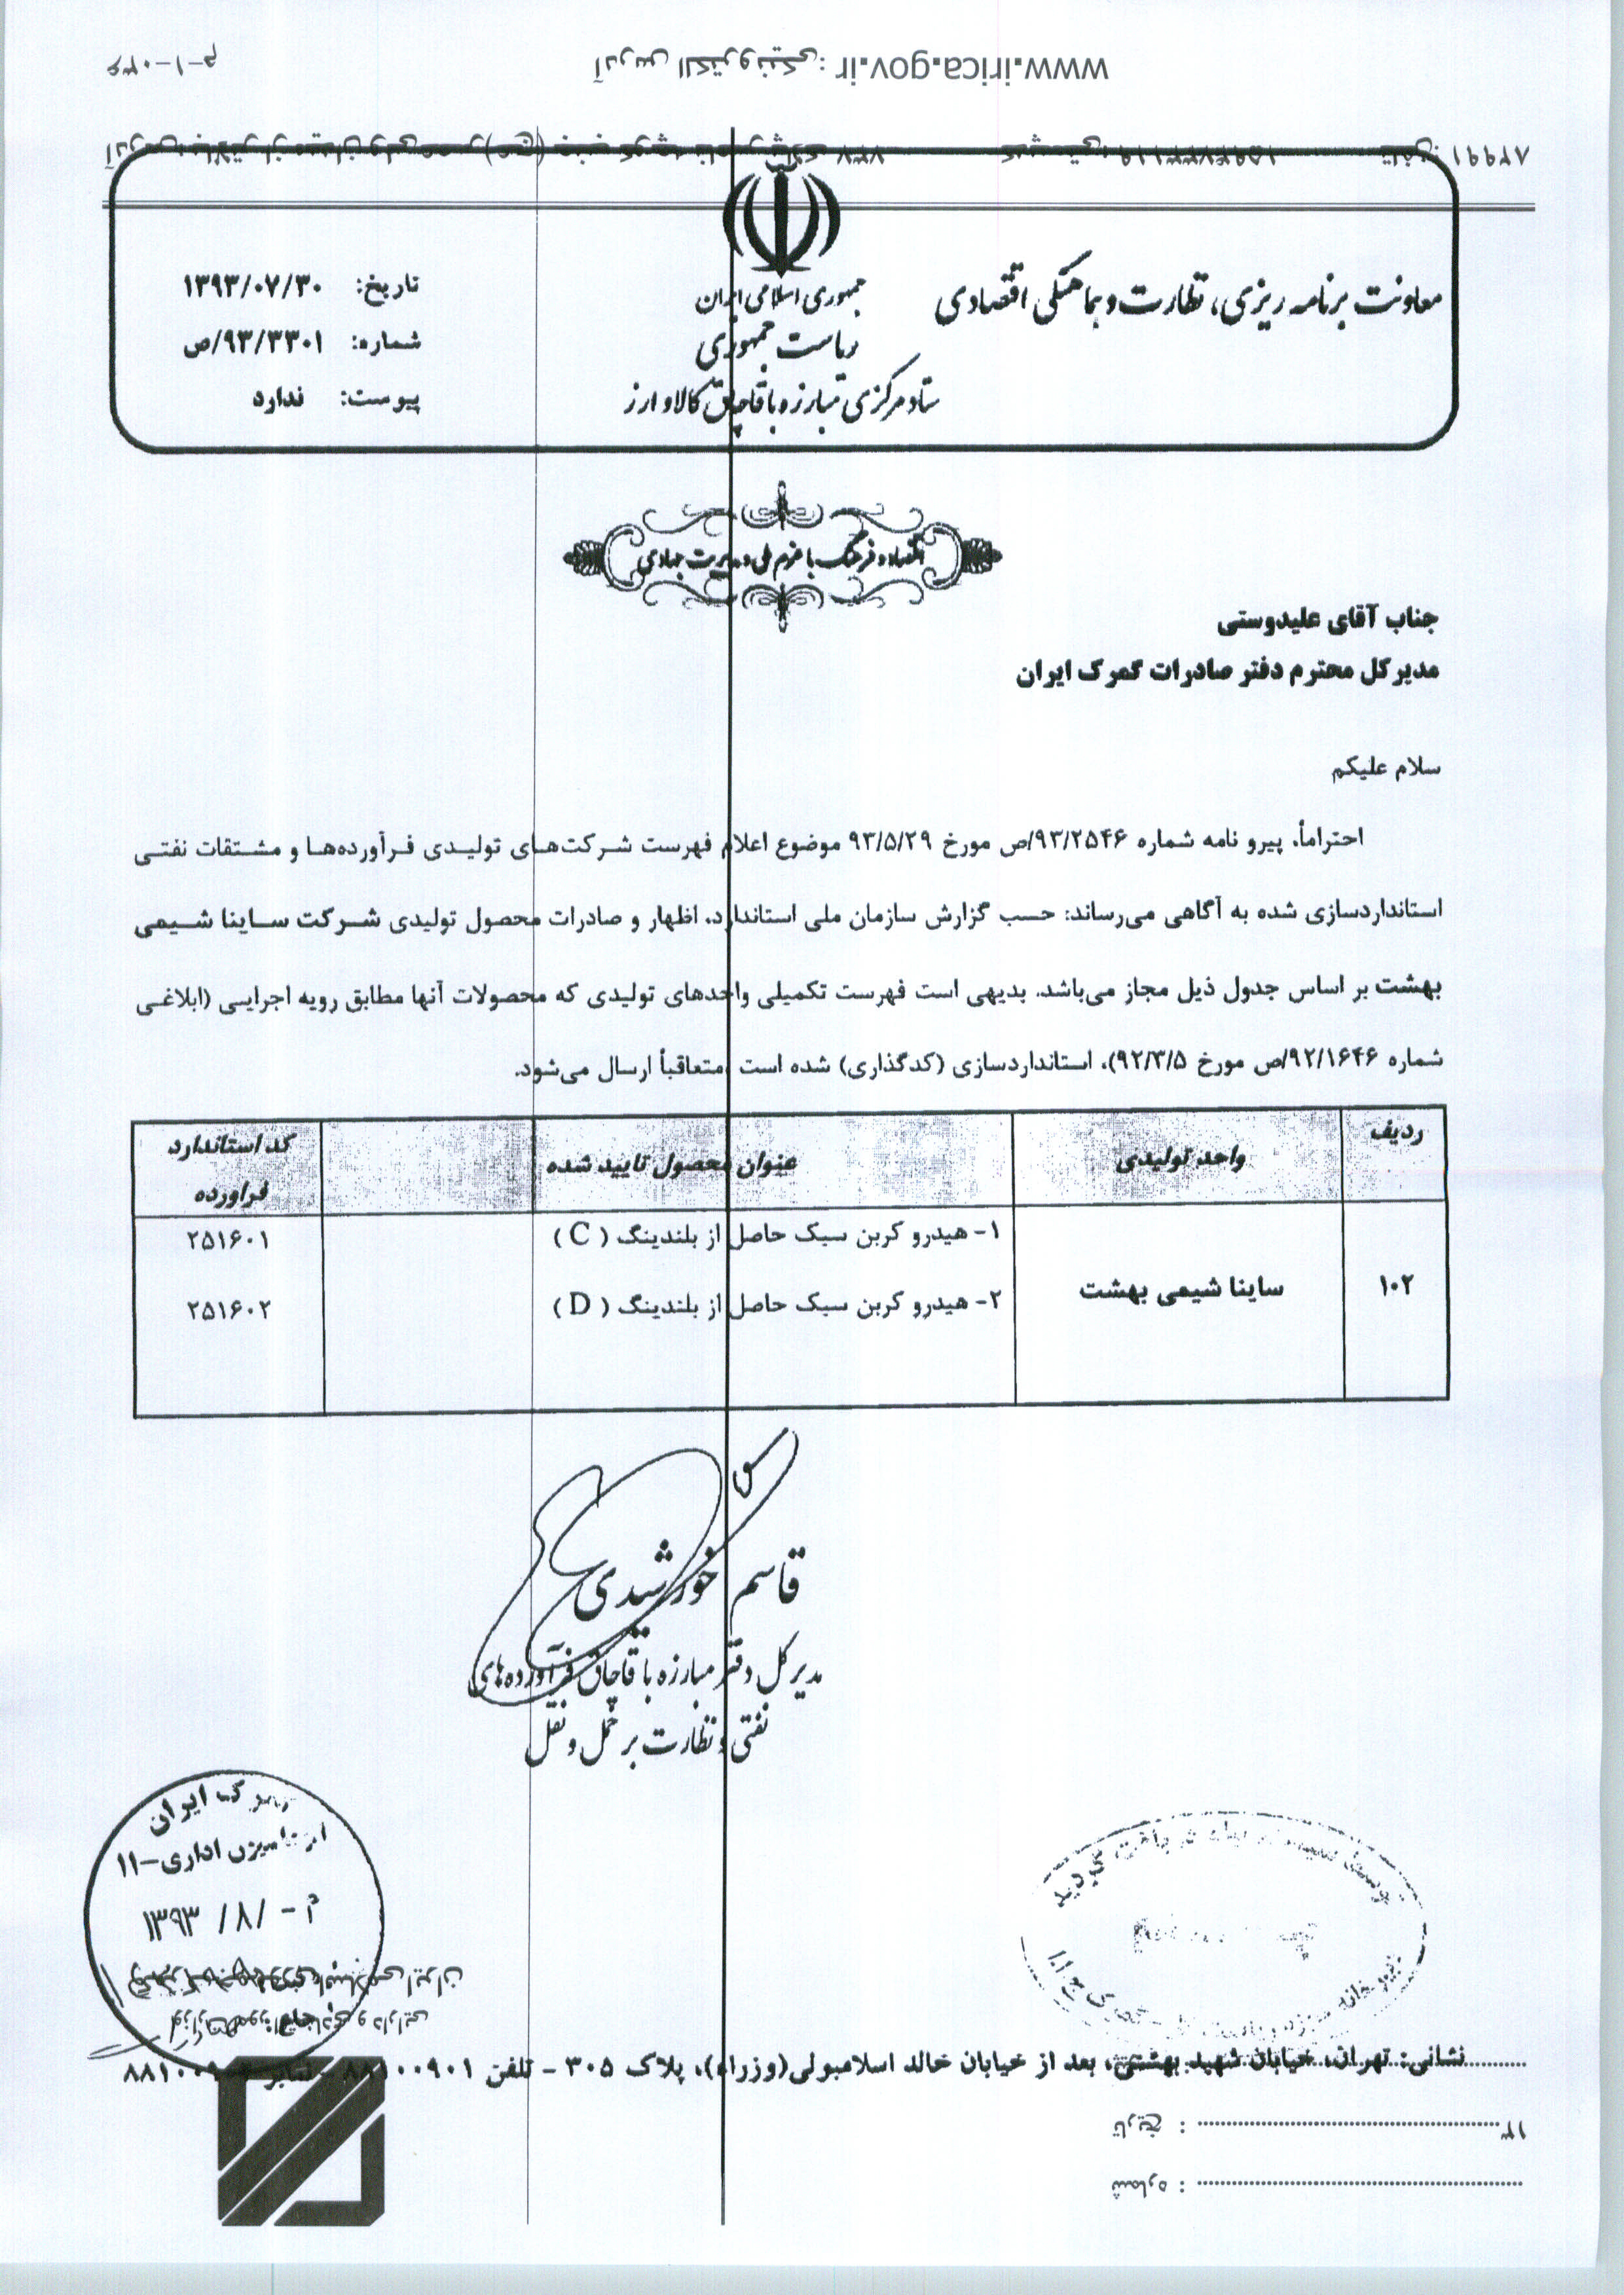 www.irica.gov.ir : آدرس الکترونیکی
معاونت برنامه ریزی، نظارت و هماهنگی اقتصادی
جمهوری اسلامی ایران
ریاست جمهوری
ستاد مرکزی مبارزه با قاچاق کالا و ارز
تاریخ: ۱۳۹۳/۰۷/۳۰
شماره: ۹۳/۳۳۰۱/ص
پیوست: ندارد
اقتصاد و فرهنگ با عزم ملی و مدیریت جهادی
جناب آقای علیدوستی
مدیرکل محترم دفتر صادرات گمرک ایران
سلام علیکم
احتراماً، پیرو نامه شماره ۹۳/۲۵۴۶/ص مورخ ۹۳/۵/۲۹ موضوع اعلام فهرست شرکت‌های تولیدی فرآورده‌ها و مشتقات نفتی
استانداردسازی شده به آگاهی می‌رساند: حسب گزارش سازمان ملی استاندارد، اظهار و صادرات محصول تولیدی شرکت ساینا شیمی
بهشت بر اساس جدول ذیل مجاز می‌باشد. بدیهی است فهرست تکمیلی واحدهای تولیدی که محصولات آنها مطابق رویه اجرایی (ابلاغی
شماره ۹۲/۱۶۴۶/ص مورخ ۹۲/۳/۵)، استانداردسازی (کدگذاری) شده است متعاقباً ارسال می‌شود.
ردیف واحد تولیدی عنوان محصول تایید شده کد استاندارد فراورده
۱۰۲ ساینا شیمی بهشت
۱- هیدرو کربن سبک حاصل از بلندینگ ( C ) ۲۵۱۶۰۱
۲- هیدرو کربن سبک حاصل از بلندینگ ( D ) ۲۵۱۶۰۲
قاسم خورشیدی
مدیر کل دفتر مبارزه با قاچاق فرآورده‌های
نفتی و نظارت بر حمل و نقل
گمرک ایران
اداری-۱۱
۱۳۹۳ /۸/
نشانی: تهران، خیابان شهید بهشتی، بعد از خیابان خالد اسلامبولی(وزراء)، پلاک ۳۰۵ - تلفن ۸۸۱۰۰۹۰۱
تاریخ :
شماره :